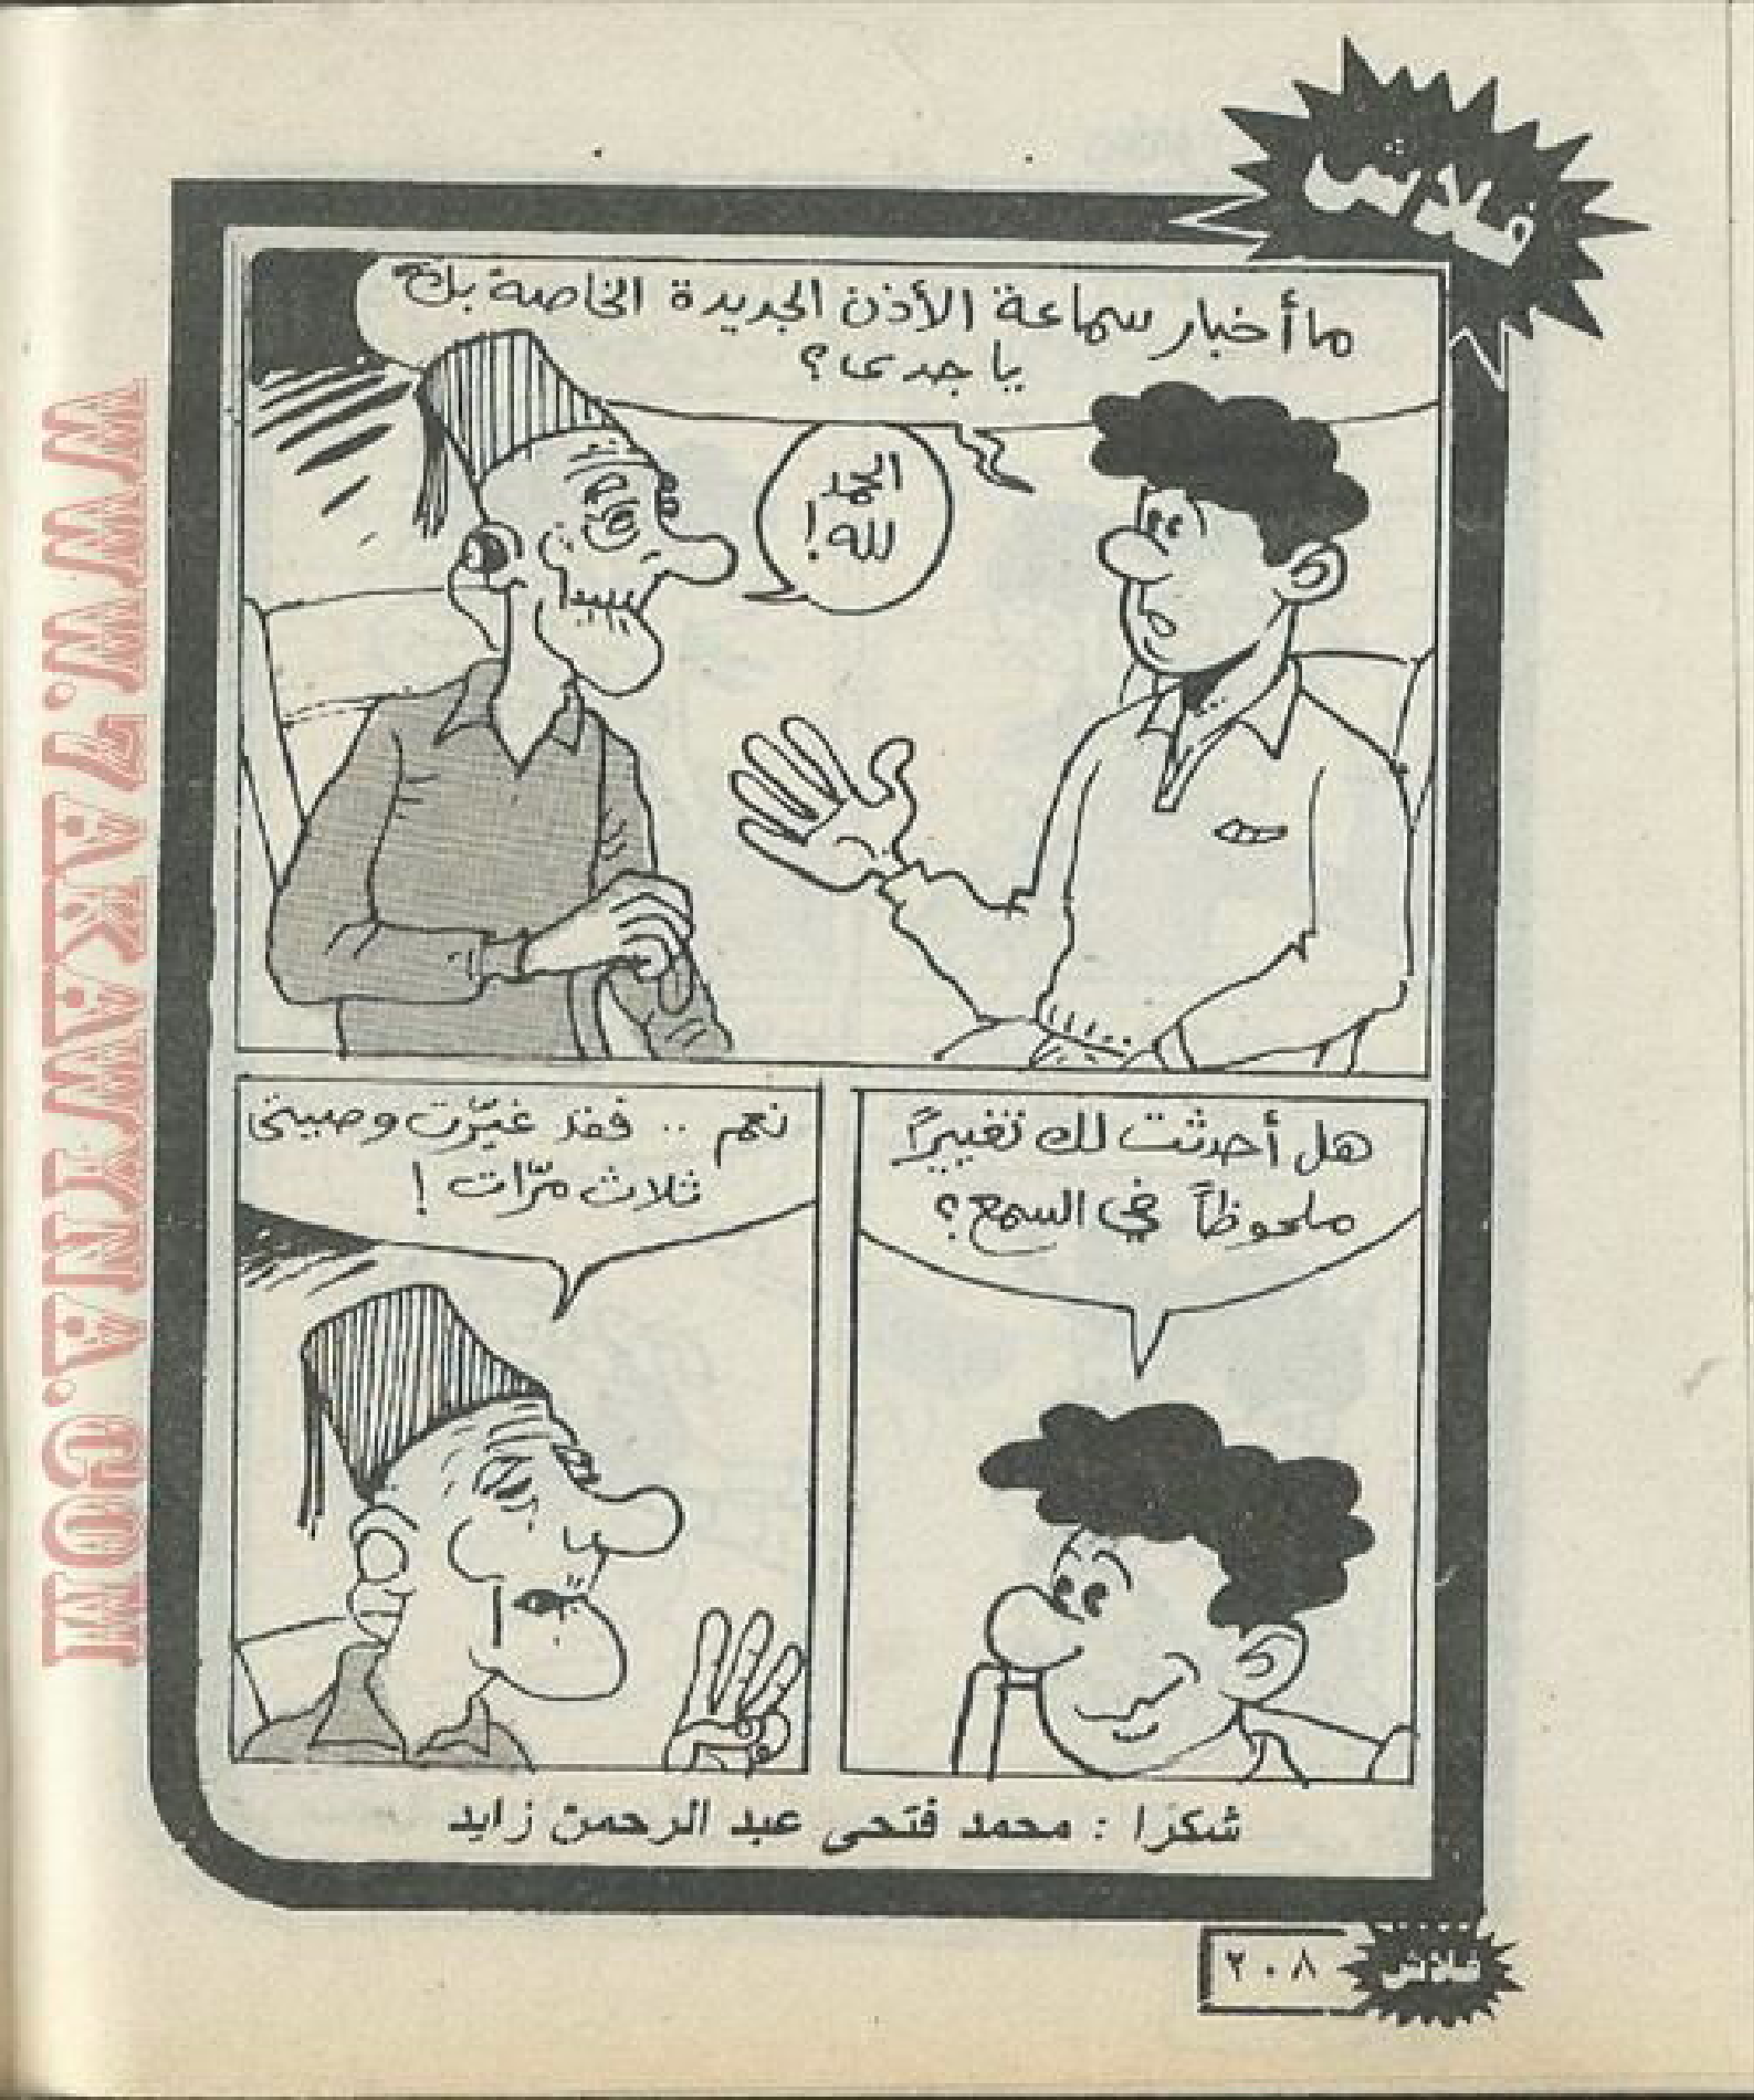 فلاش
ما أخبار سماعة الأذن الجديدة الخاصة بك
يا جدى؟
الحمد
لله!
هل أحدثت لك تغييراً
ملحوظاً في السمع؟
نعم .. فقد غيّرت وصيتى
ثلاث مرّات !
شكرا : محمد فتحى عبد الرحمن زايد
٢٠٨
فلاش
WWW.7AKAWITNA.COM